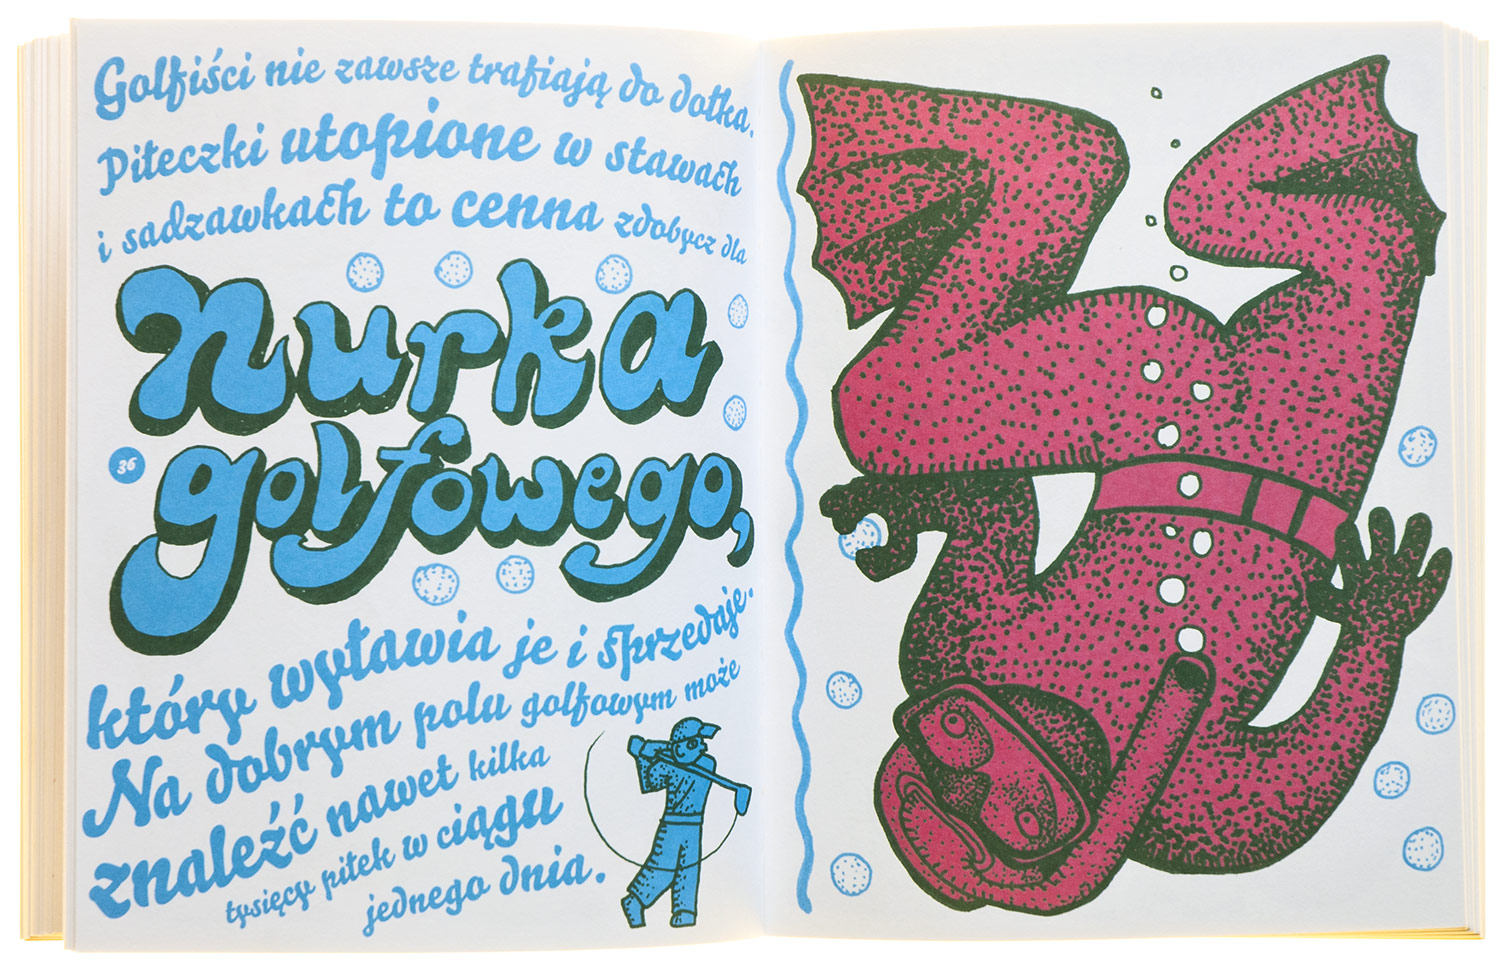 Golfiści nie zawsze trafiają do dołka.
Piłeczki utopione w stawach
i sadzawkach to cenna zdobycz dla
nurka
36
golfowego,
który wyławia je i sprzedaje.
Na dobrym polu golfowym może
znaleźć nawet kilka
tysięcy piłek w ciągu
jednego dnia.